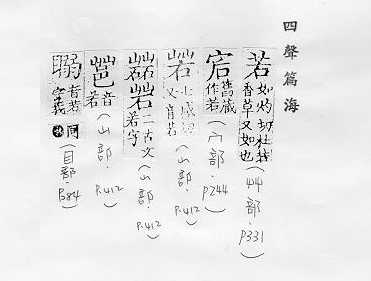 四聲篇海
若 如灼切杜若香草又如也(艸部.P331)
宕 舊藏作若(宀部.P244)
岩 又音若(山部.P.412)
二古文若字(山部.P.412)
音若(山部.P.412)
音若字義同(目部.P.84)